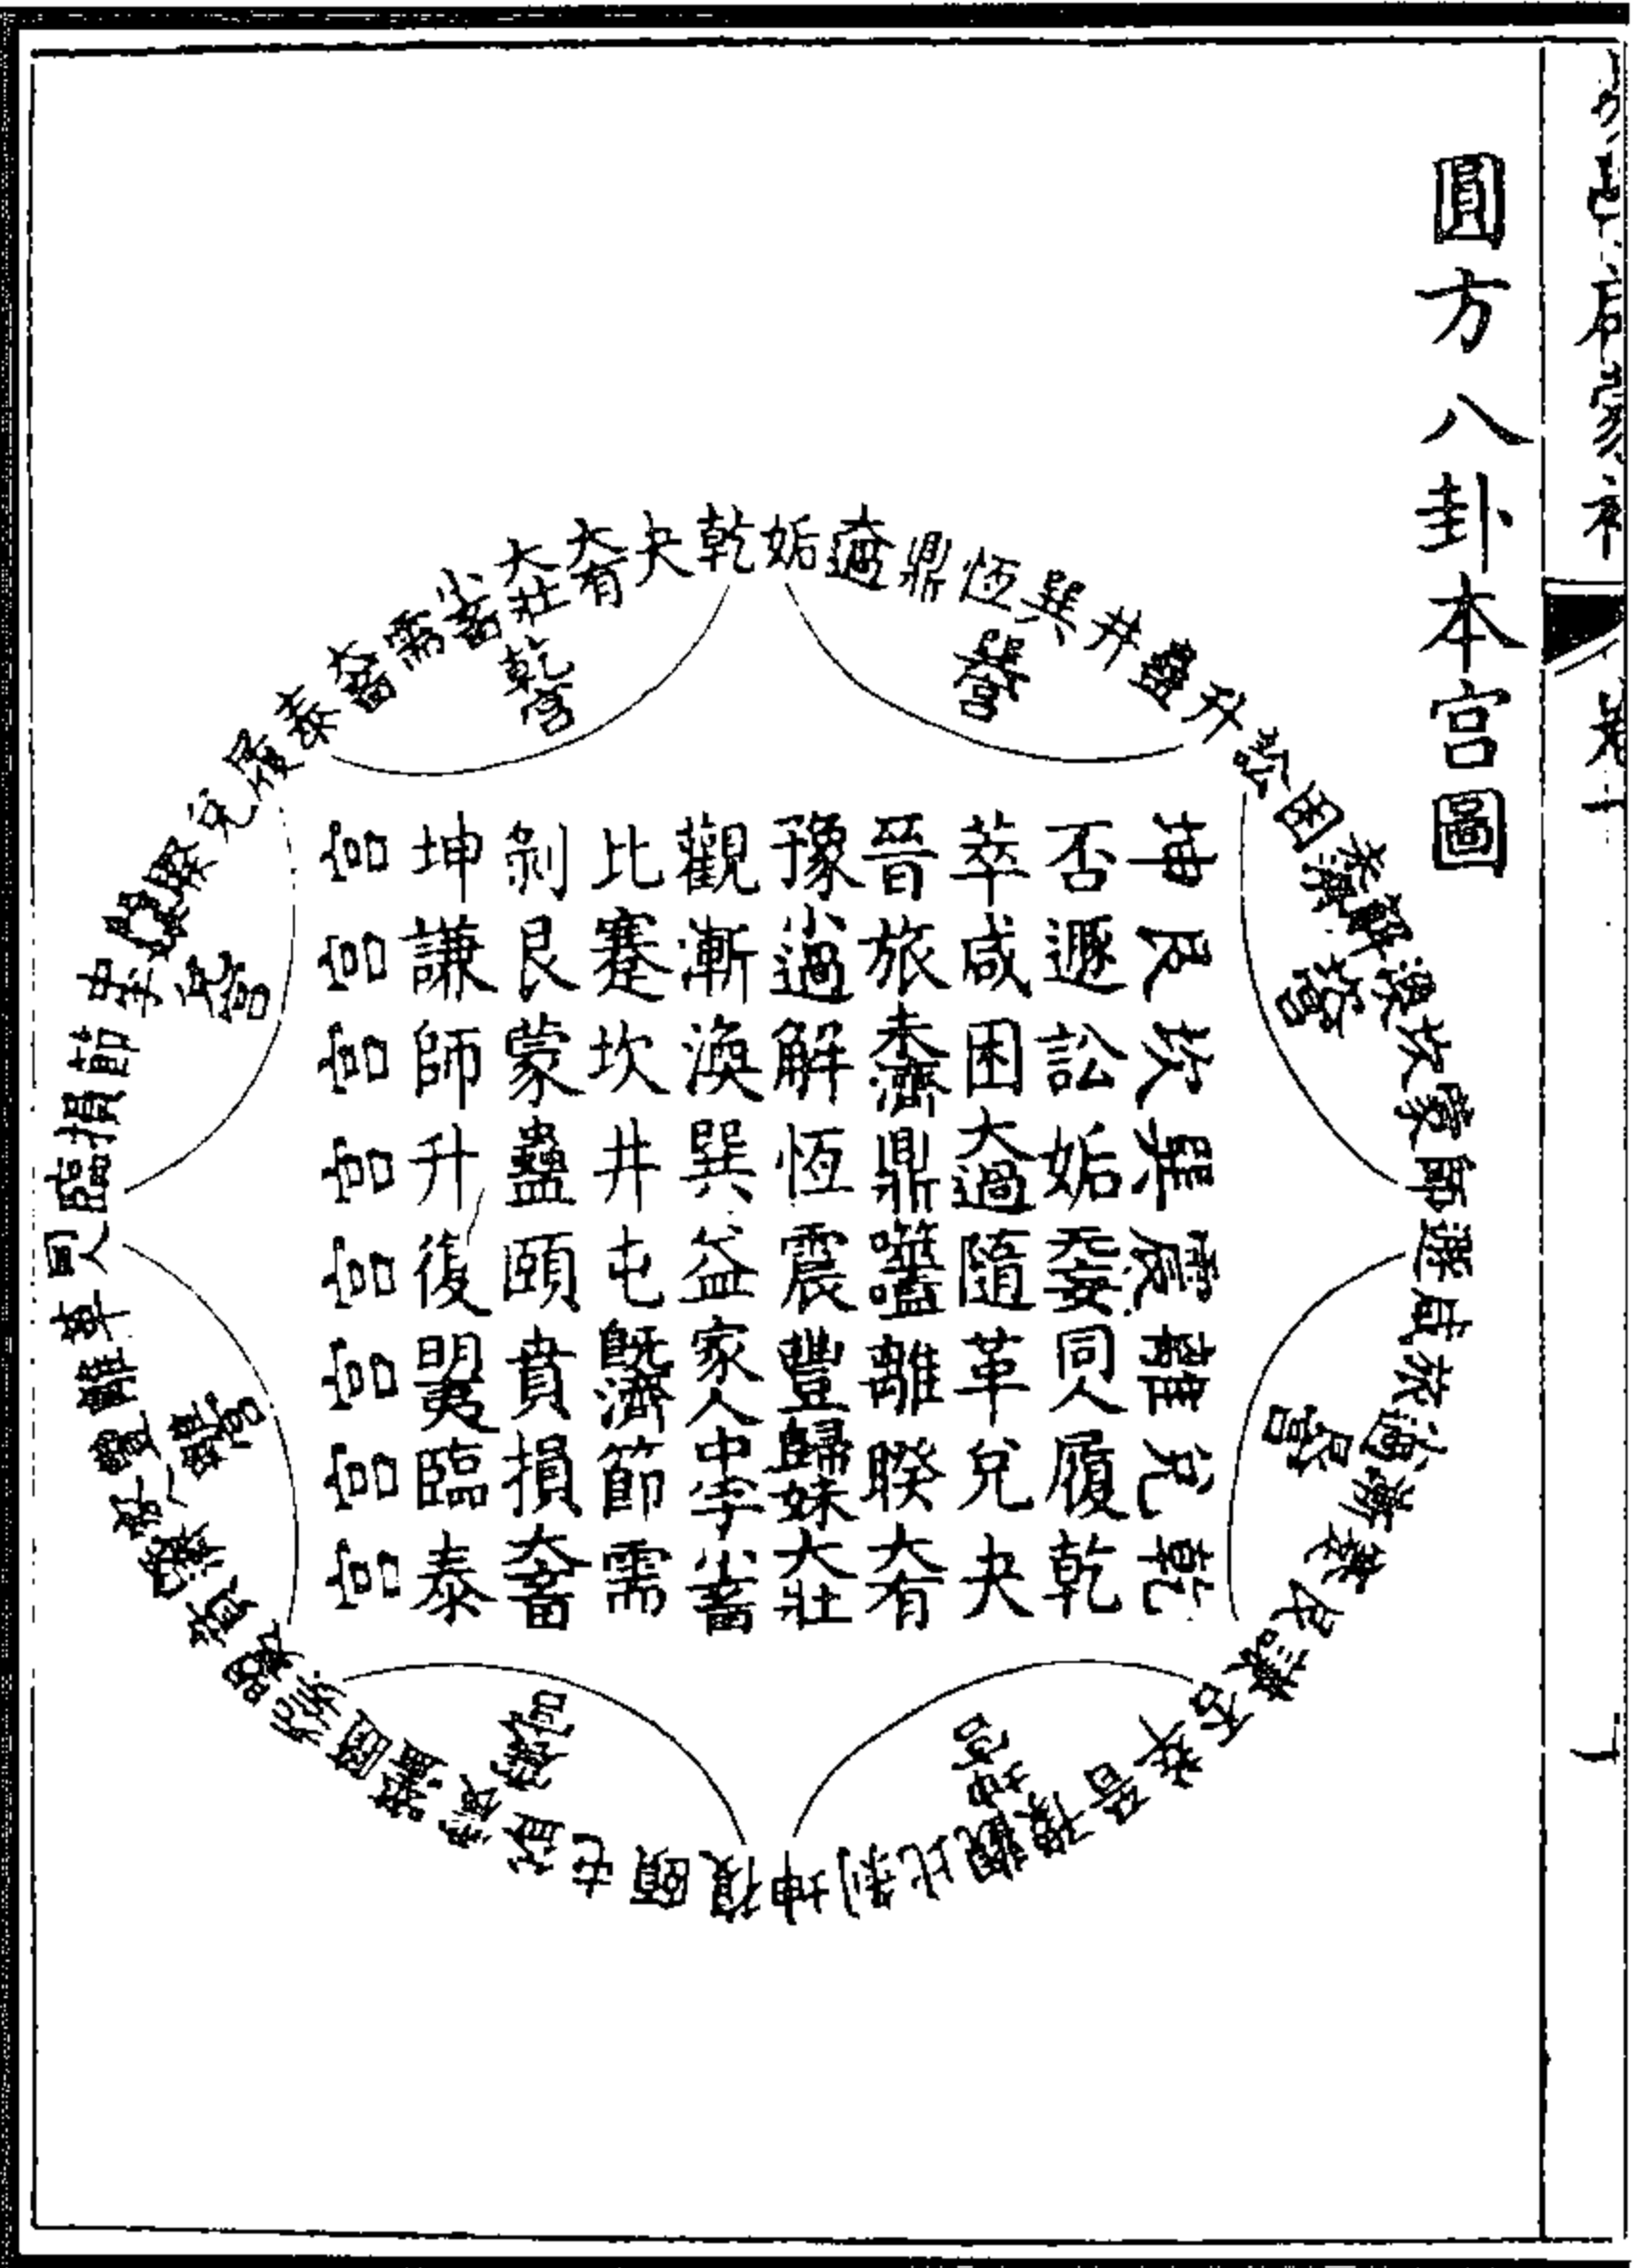 圓方八卦本宮圖
乾
姤
大過
鼎
恆
巽
井
蠱
升
訟
困
未濟
解
渙
坎
蒙
師
遯
咸
旅
小過
漸
蹇
艮
謙
否
萃
晉
豫
觀
比
剝
坤
復
頤
屯
益
震
噬嗑
隨
无妄
明夷
賁
既濟
家人
豐
離
革
同人
臨
損
節
中孚
歸妹
睽
兌
履
泰
大畜
需
小畜
大壯
大有
夬
乾宮
巽宮
坎宮
艮宮
坤宮
震宮
離宮
兌宮
否遯訟姤无妄同人履乾
萃咸困大過隨革兌夬
晉旅未濟鼎噬嗑離睽大有
豫小過解恆震豐歸妹大壯
觀漸渙巽益家人中孚小畜
比蹇坎井屯既濟節需
剝艮蒙蠱頤賁損大畜
坤謙師升復明夷臨泰